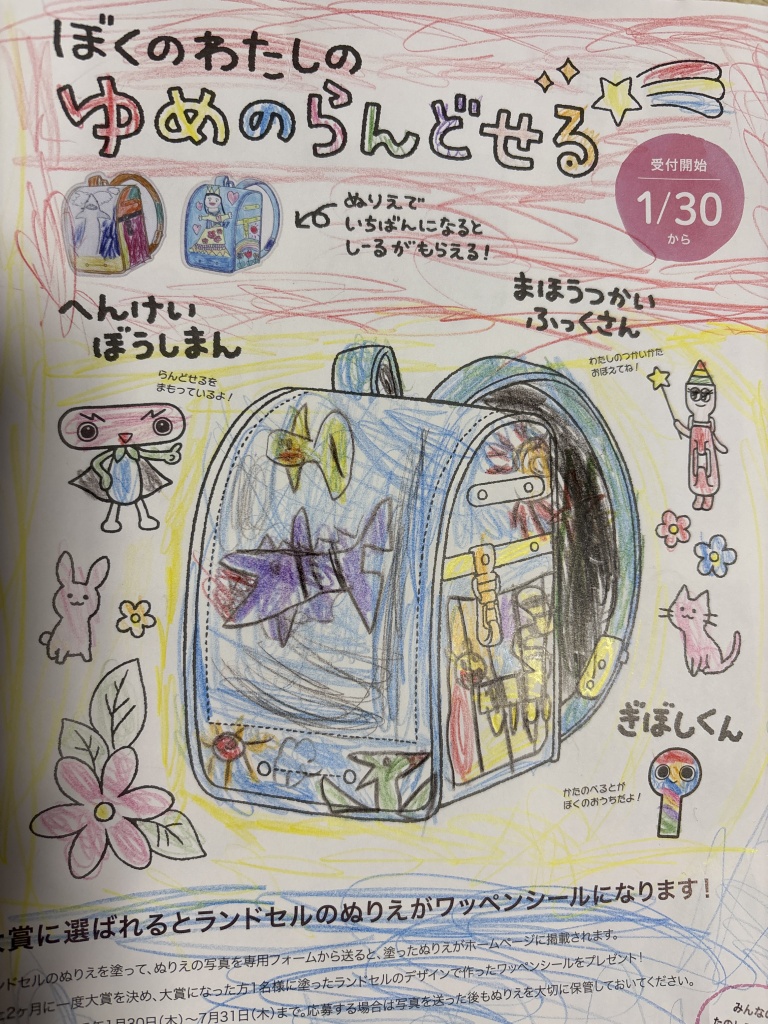 ぼくのわたしの
ゆめのらんどせる
受付開始
1/30
から
ぬりえで
いちばんになると
しーるがもらえる!
へんけい
ぼうしまん
らんどせるを
まもっているよ!
まほうつかい
ふっくさん
わたしのつかいかた
おぼえてね!
ぎぼしくん
かたのべるとが
ぼくのおうちだよ!
大賞に選ばれるとランドセルのぬりえがワッペンシールになります!
ンドセルのぬりえを塗って、ぬりえの写真を専用フォームから送ると、塗ったぬりえがホームページに掲載されます。
2ヶ月に一度大賞を決め、大賞になった方1名様に塗ったランドセルのデザインで作ったワッペンシールをプレゼント!
年1月30日(木)〜7月31日(木)まで。応募する場合は写真を送った後もぬりえを大切に保管しておいてください。
みんなの